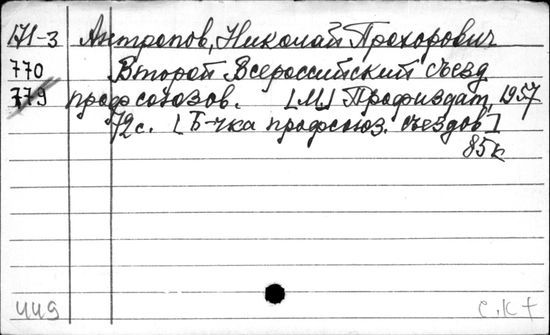 171-3 Антропов, Николай Прохорович
770 Второй Всероссийский съезд
779 профсоюзов. [М] Профиздат, 1957
72 с. [Б-чка профсоюз. съездов]
85к
449 с.к+